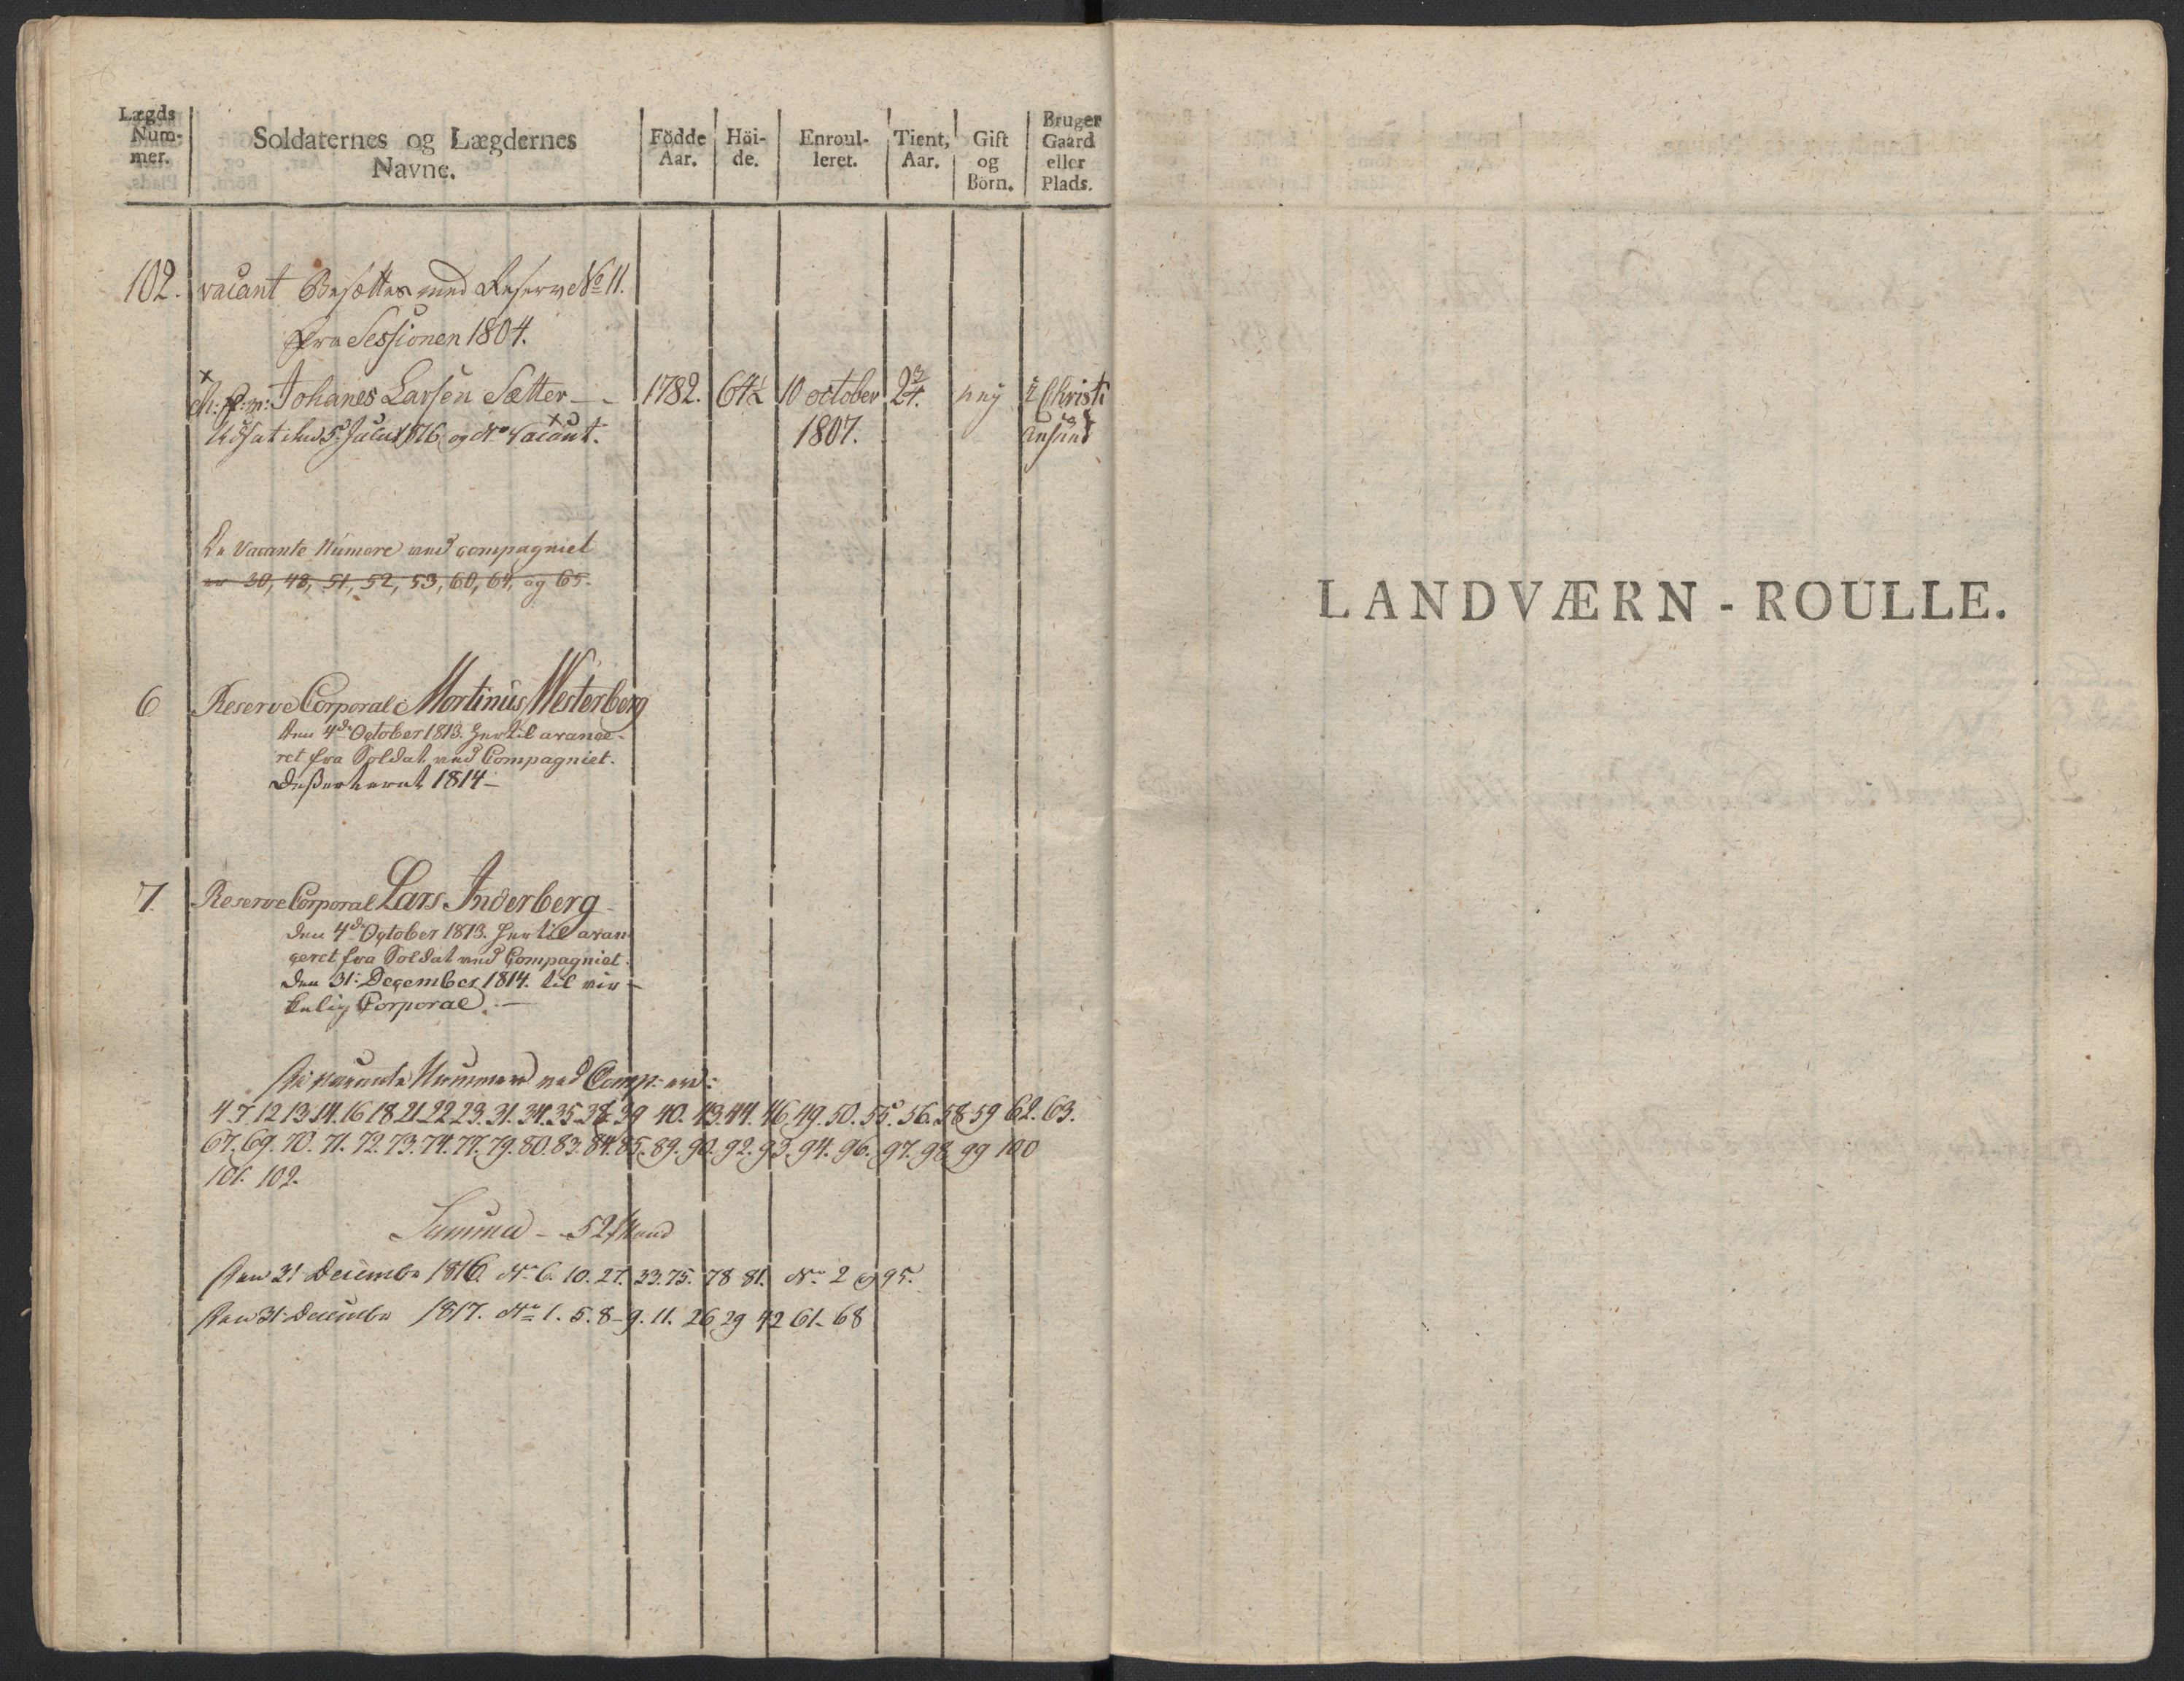 Lægds Num- mer.
Soldaternes og Lægdernes Navne.
Födde Aar.
Höi- de.
Enroul- leret.
Tient, Aar.
Gift og Börn.
Bruger Gaard eller Plads.
102. vacant Besættes med Reserve No 11.
fra Sessionen 1804.
Johanes Larsen Sætter 1782. 64½ 10 october 2¾ nej i Christi
Udsat den 5 1816 og No Vacant. 1807. ansund
De Vacante Numere ved compagniet
er 30, 48, 51, 52, 53, 60, 64, og 65.
6 Reserve Corporal Mortinus Westerberg
den 4de October 1813. hertil arange-
ret fra Soldat ved Compagniet.
Deßerteret 1814
7. Reserve Corporal Lars Inderberg
den 4de October 1813. hertil aran
geret fra Soldat ved Compagniet.
den 31: December 1814. til vir-
kelig Corporal.
De vacante Nummere ved Comp: er:
4. 7. 12 13. 14. 16 18. 21. 22 23. 31. 34. 35. 38. 39 40. 43. 44. 46. 49. 50. 55. 56. 58 59 62. 63.
67. 69. 70. 71. 72. 73. 74. 77. 79. 80. 83. 84. 85. 89. 90. 92. 93. 94. 96. 97. 98. 99 100
101. 102.
Summa - 52 Mand
Den 31 Decembr 1816. No 6. 10. 27. 33. 75. 78 81. No 2 og 95.
Den 31 Decembr 1817. No 1. 5. 8. 9. 11. 26 29 42 61. 68
LANDVÆRN - ROULLE.